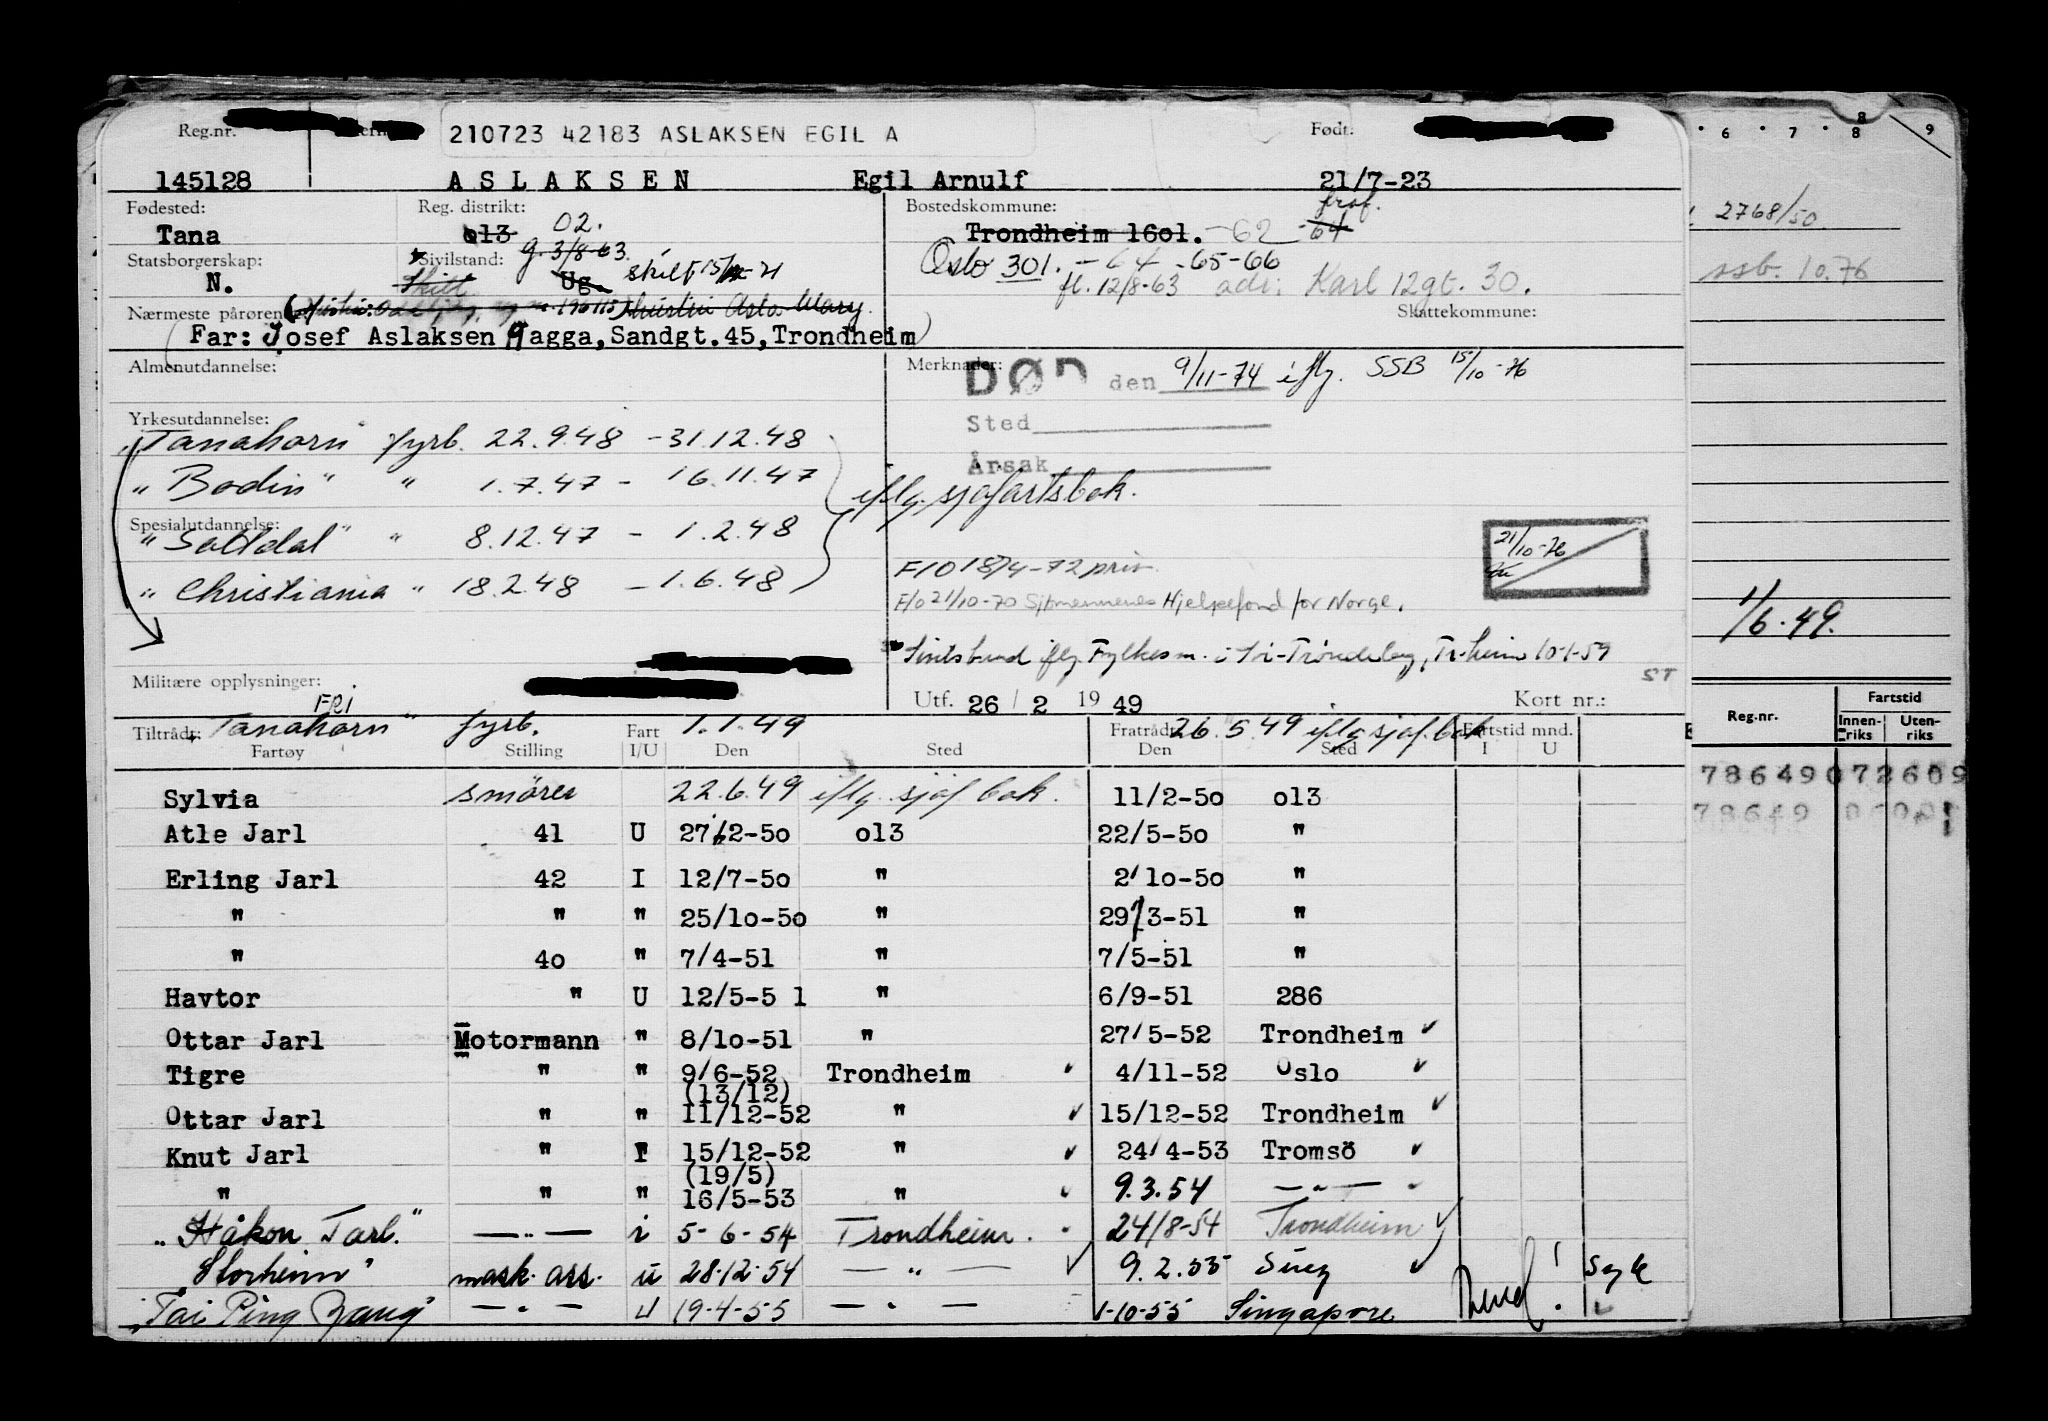 Reg.nr. 210723 42183 ASLAKSEN EGIL A Født:
145128 ASLAKSEN Egil Arnulf 21/7-23
Fødested: Reg. distrikt: 02. Bostedskommune:
Tana 013 Trondheim 1601. -62 -64
Statsborgerskap: Sivilstand: g. 3/8-63 Oslo 301. -64 -65-66
N. Skilt Ug. skilt 15/ -71 fl. 12/8-63 adr: Karl 12gt. 30.
Nærmeste pårørende: Skattekommune:
Far: Josef Aslaksen Gagga, Sandgt.45, Trondheim
Almenutdannelse: Merknader: DØD den 9/11-74 iflg. SSB 15/10-76
Yrkesutdannelse: Sted
"Tanahorn" fyrb. 22.9.48 - 31.12.48 Årsak
"Bodin" " 1.7.47 - 16.11.47 iflg. sjøfartsbok.
Spesialutdannelse:
"Saltdal" " 8.12.47 - 1.2.48 21/10-76
"Christiania" 18.2.48 - 1.6.48 F/O 18/4-72 priv.
F/O 21/10-70 Sjømennenes Hjelpefond for Norge.
iflg. Fylkesm. i Sr-Trøndelag, Tr.heim 10-1-59
ST
Militære opplysninger: Utf. 26 / 2 1949 Kort nr.:
FRI
"Tanahorn" fyrb. 1.1.49 26.5.49 iflg sjøf. bok
Tiltrådt: Fart Fratrådt Fartstid mnd.
Fartøy Stilling I/U Den Sted Den Sted I U
Sylvia smører 22.6.49 iflg. sjøf bok. 11/2-50 013
Atle Jarl 41 U 27/2-50 013 22/5-50 "
Erling Jarl 42 I 12/7-50 " 2/10-50 "
" " " 25/10-50 " 29/3-51 "
" 40 " 7/4-51 " 7/5-51 "
Havtor " U 12/5-5 1 " 6/9-51 286
Ottar Jarl Motormann " 8/10-51 " 27/5-52 Trondheim
Tigre " " 9/6-52 Trondheim 4/11-52 Oslo
(13/12)
Ottar Jarl " " 11/12-52 " 15/12-52 Trondheim
Knut Jarl " I 15/12-52 " 24/4-53 Tromsö
(19/5)
" " " 16/5-53 " 9.3.54 — " —
"Håkon Jarl." — " — i 5-6-54 Trondheim. 24/8-54 Trondheim
"Storheim" mask. ass. u 28-12-54 — " — 9.2.55 Suez Syk
"Tai Ping Yang" — " — U 19-4-55 — " — 1-10-55 Singapore
6 7 8 9
2768/50
ssb. 10.76
1/6.49.
Reg.nr. Fartstid
Innenriks Utenriks
78649072609
78649